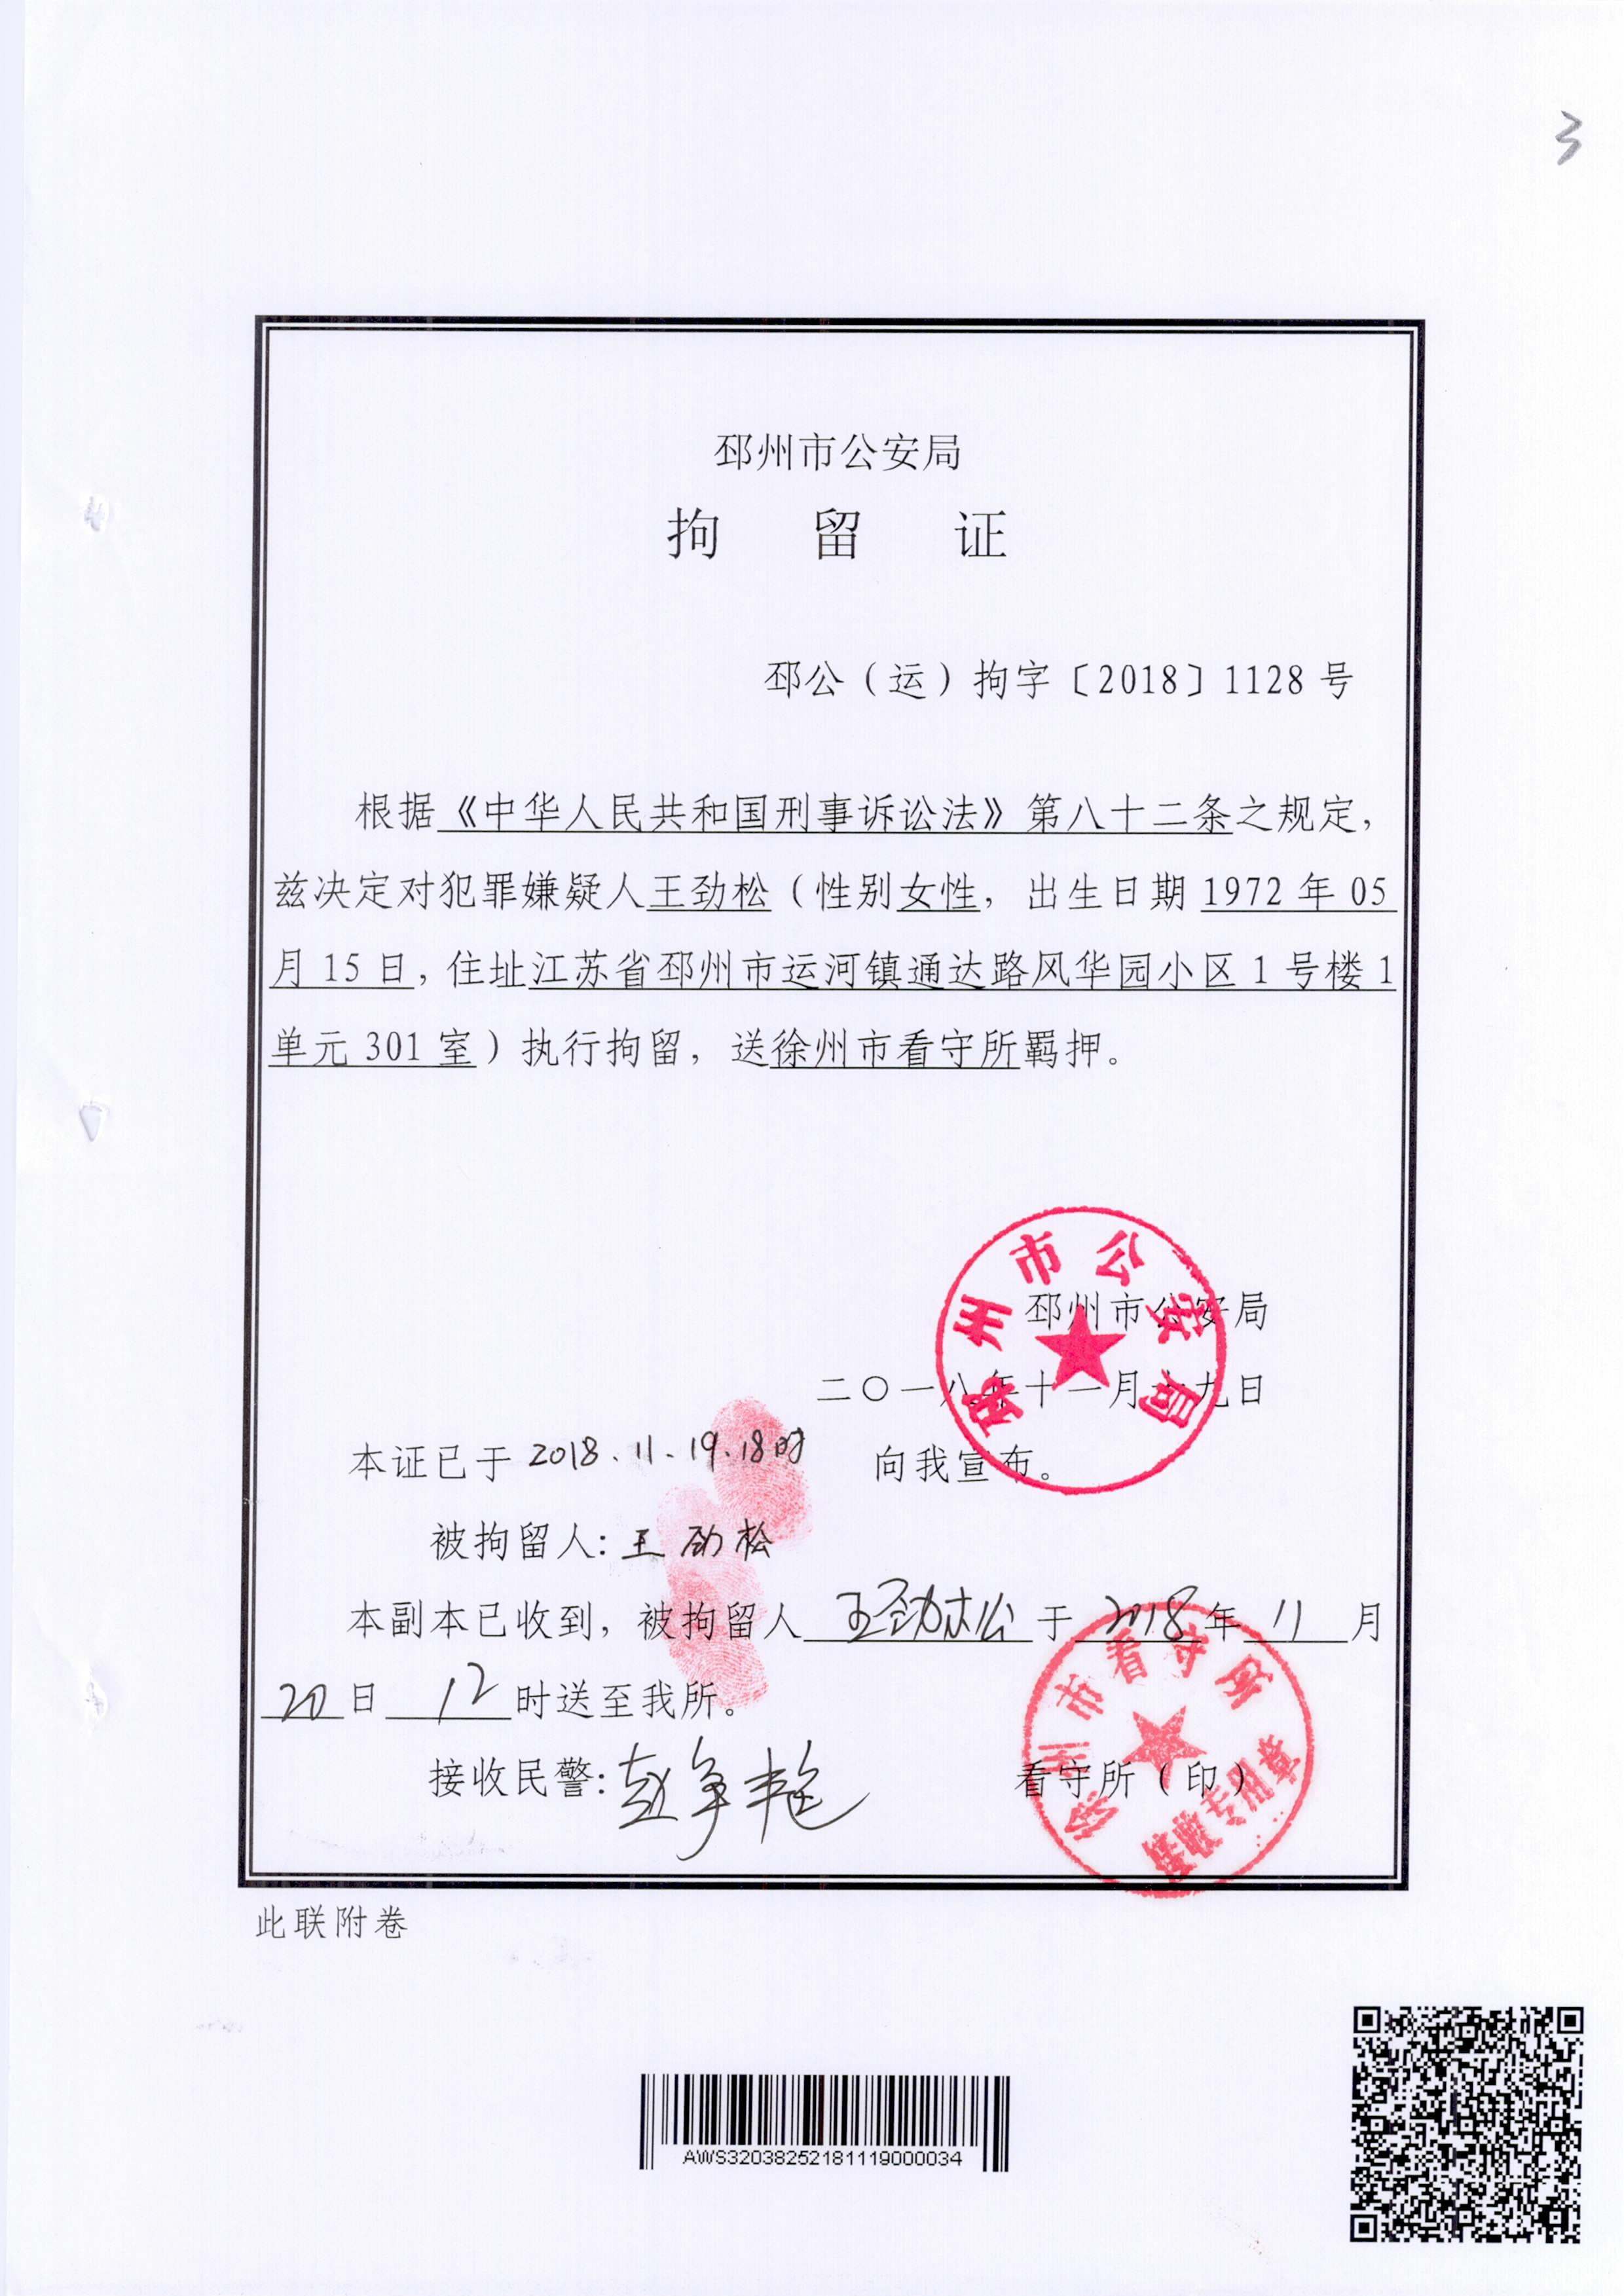 3
邳州市公安局
拘 留 证
邳公（运）拘字〔2018〕1128号
根据《中华人民共和国刑事诉讼法》第八十二条之规定，
兹决定对犯罪嫌疑人王劲松（性别女性，出生日期1972年05
月15日，住址江苏省邳州市运河镇通达路风华园小区1号楼1
单元301室）执行拘留，送徐州市看守所羁押。
邳州市公安局
邳州市公安局
二〇一八年十一月十九日
本证已于2018.11.19.18时 向我宣布。
被拘留人：王劲松
本副本已收到，被拘留人王劲松于2018年11月
20日12时送至我所。
接收民警：
看守所（印）
徐州市看守所
接收专用章
此联附卷
AWS32038252181119000034